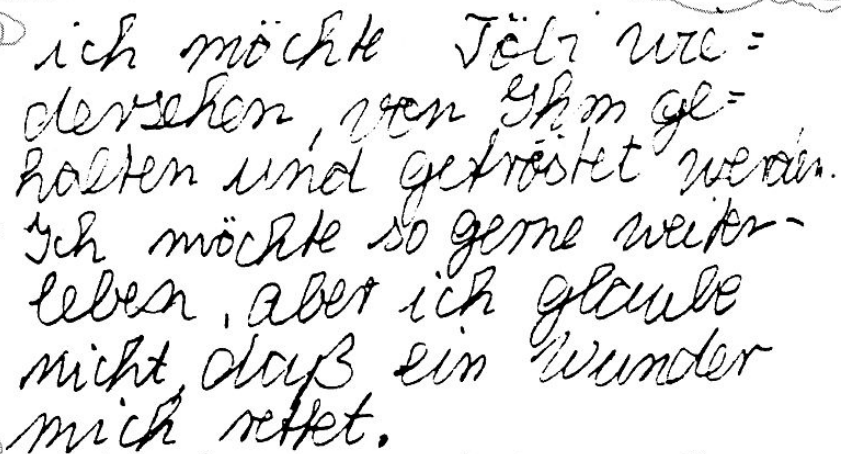 ich möchte Töbi wie=
dersehen, von Ihm ge=
halten und getröstet werden.
Ich möchte so gerne weiter-
leben, aber ich glaube
nicht, daß ein Wunder
mich rettet.